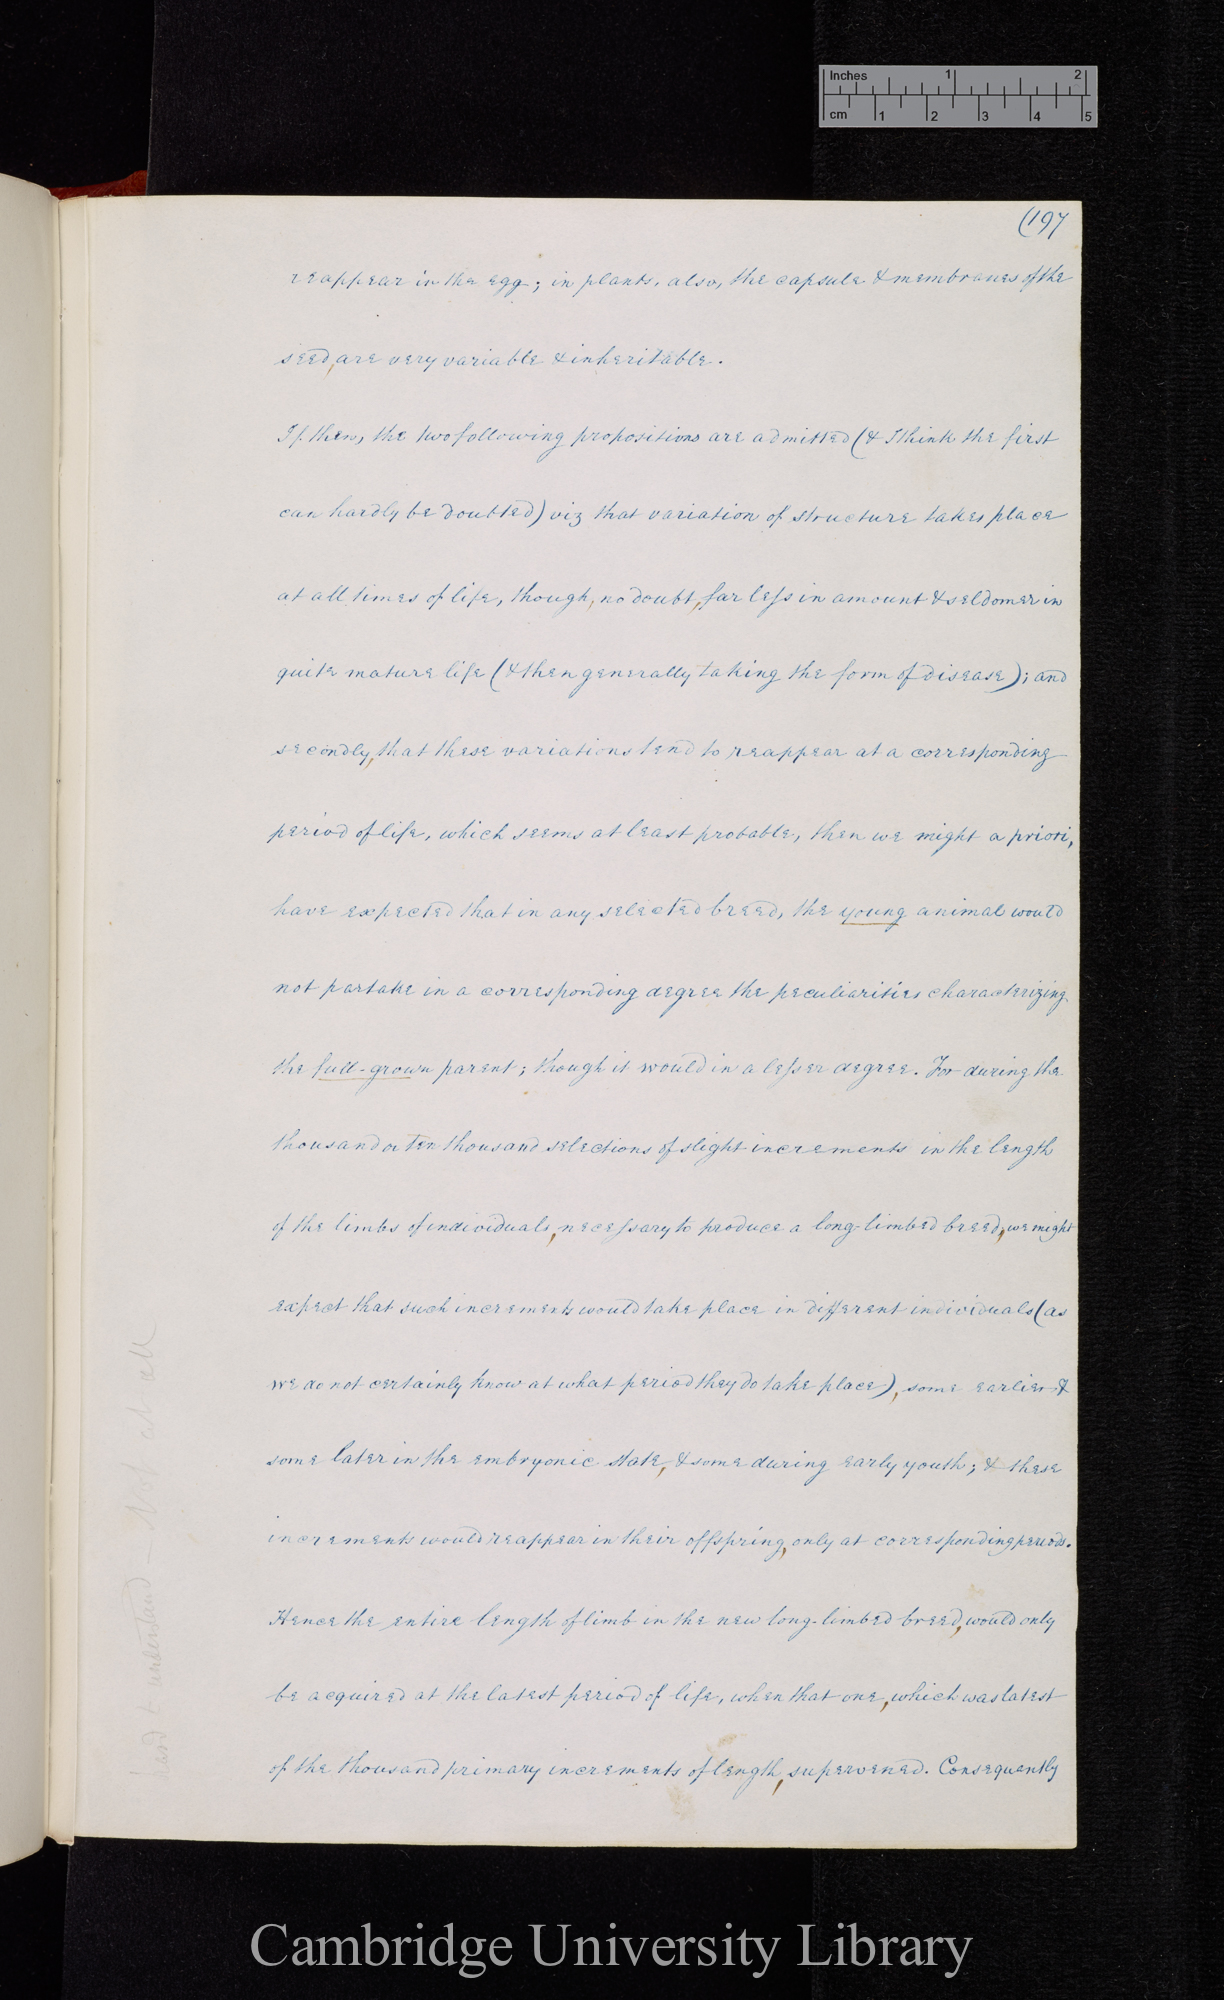 Inches 1 2
cm 1 2 3 4 5
(197
reappear in the egg; in plants, also, the capsule & membranes of the
seed, are very variable & inheritable.
If then, the two following propositions are admitted (& I think the first
can hardly be doubted) viz that variation of structure takes place
at all times of life, though, no doubt, far less in amount & seldomer in
quite mature life (& then generally taking the form of disease); and
secondly, that these variations tend to reappear at a corresponding
period of life, which seems at least probable, then we might a priori,
have expected that in any selected breed, the young animal would
not partake in a corresponding degree the peculiarities characterizing
the full-grown parent; though it would in a lesser degree. For during the
thousand or ten thousand selections of slight increments in the length
of the limbs of individuals, necessary to produce a long-limbed breed, we might
expect that such increments would take place in different individuals (as
we do not certainly know at what period they do take place), some earlier &
some later in the embryonic state, & some during early youth; & these
increments would reappear in their offspring, only at corresponding periods.
Hence the entire length of limb in the new long-limbed breed, would only
be acquired at the latest period of life, when that one, which was latest
of the thousand primary increments of length, supervened. Consequently
hard to understand — Not at all
Cambridge University Library